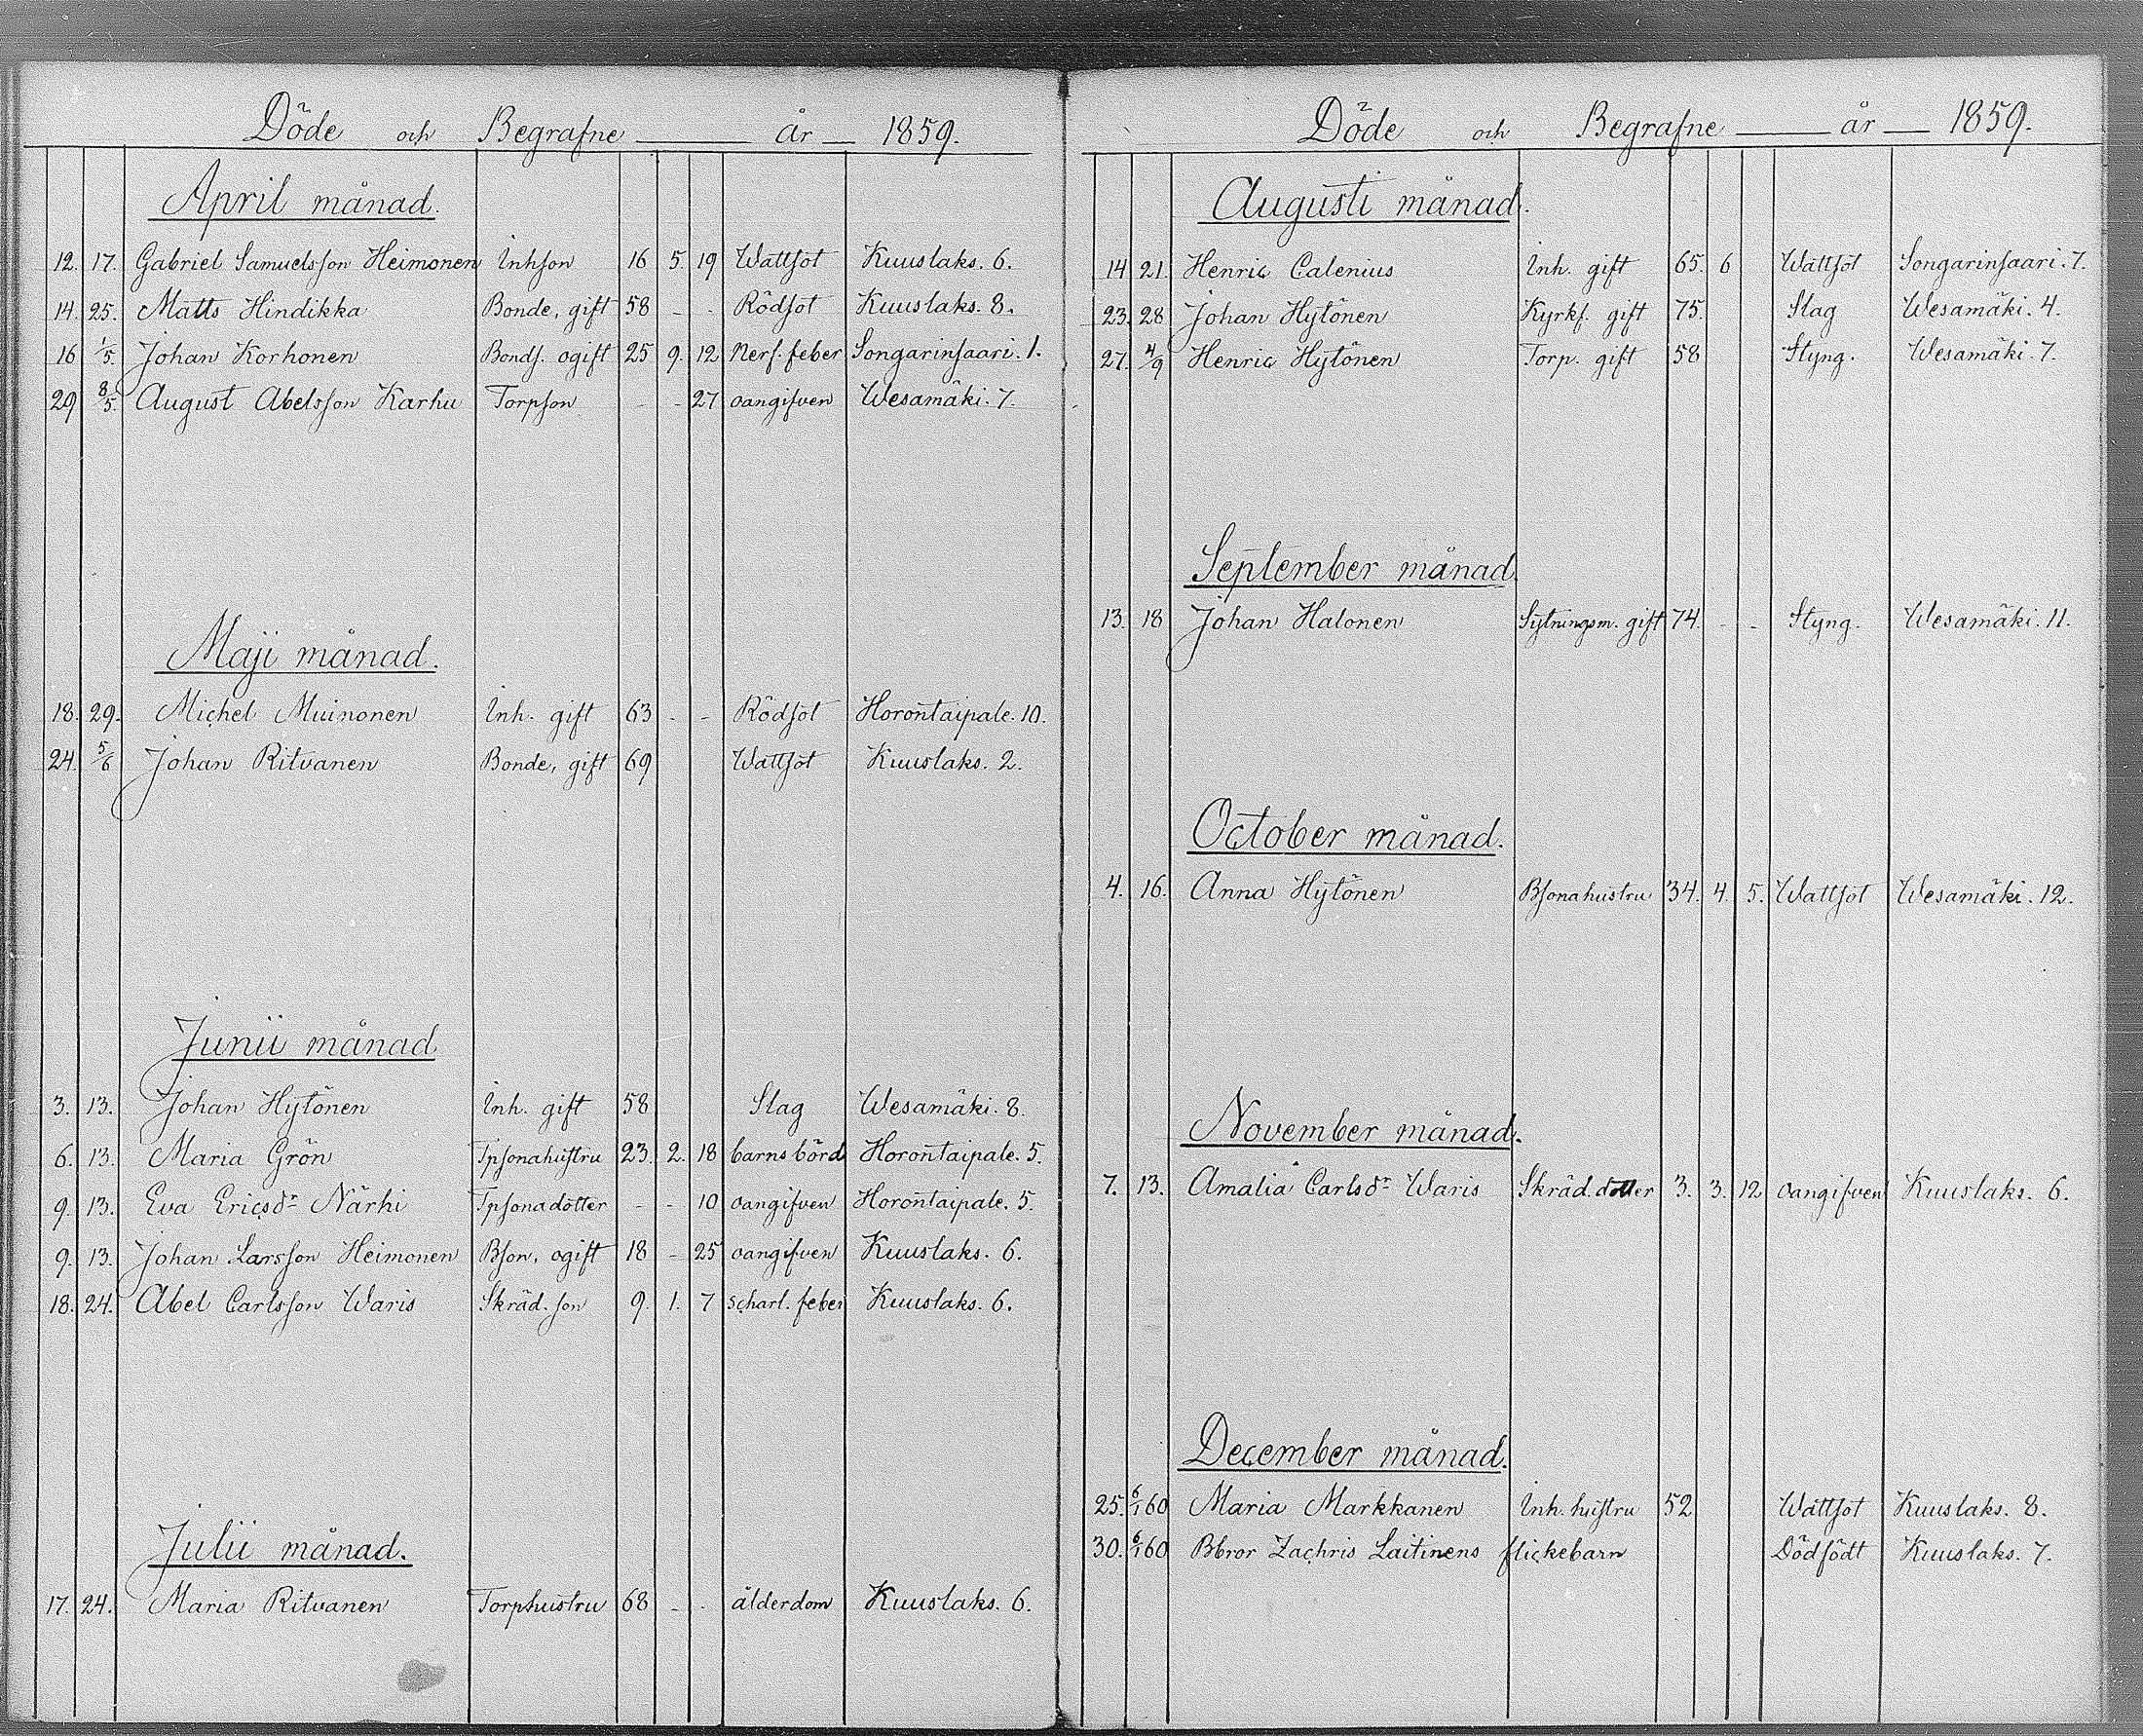 Döde och Begrafne år 1859.
April månad.
12. 17. Gabriel Samuelsson Heimonen Inhson 16 5 19 Wattsot Kuuslaks. 6.
14. 25. Matts Hindikka Bonde, gift 58 - - Rödsot Kuuslaks. 8.
16 1/5 Johan Korhonen Bonds. ogift 25 9. 12 Nerf. feber Songarinsaari. 1.
29 8/5. August Abelsson Karhu Torpson - - 27 oangifven Wesamäki. 7.
Maji månad.
18. 29. Michel Muinonen Inh. gift 63 - - Rödsot Horontaipale. 10.
24. 5/6 Johan Ritvanen Bonde, gift 69 Wattsot Kuuslaks. 2.
Junii månad
3. 13. Johan Hytönen Inh. gift 58 Slag Wesamäki. 8.
6. 13. Maria Grön Tpsonahustru 23. 2. 18 barnsbörd Horontaipale. 5.
9. 13. Eva Ericsdr Närhi Tpsonadotter - - 10 oangifven Horontaipale. 5.
9. 13. Johan Larsson Heimonen Bson, ogift 18 - 25 oangifven Kuuslaks. 6.
18. 24. Abel Carlsson Waris Skräd. son 9. 1. 7 scharl. feber Kuuslaks. 6.
Julii månad.
17. 24. Maria Ritvanen Torphustru 68 - - ålderdom Kuuslaks. 6.
Döde och Begrafne år 1859.
Augusti månad.
14 21. Henric Calenius Inh. gift 65. 6 Wattsot Songarinsaari. 7.
23. 28 Johan Hytönen Kyrkf. gift 75. Slag Wesamäki. 4.
27. 4/9 Henric Hytönen Torp. gift 58 Styng. Wesamäki. 7.
September månad.
13. 18 Johan Halonen Sytningsm. gift 74. - - Styng. Wesamäki. 11.
October månad.
4. 16. Anna Hytönen Bsonahustru 34. 4. 5. Wattsot Wesamäki. 12.
November månad.
7. 13. Amalia Carlsdr Waris Skräd. dotter 3. 3. 12 oangifven Kuuslaks. 6.
December månad.
25. 6/1 60 Maria Markkanen Inh. hustru 52 Wattsot Kuuslaks. 8.
30. 6/1 60 Bbror Zachris Laitinens flickebarn Dödfödt Kuuslaks. 7.